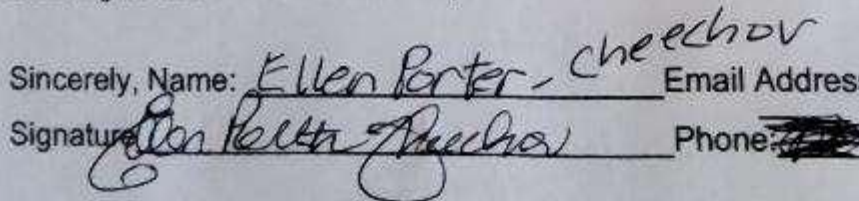 Sincerely, Name: Ellen Porter-Cheechov Email Addres
Signature Ellen Porter-Cheechov Phone: